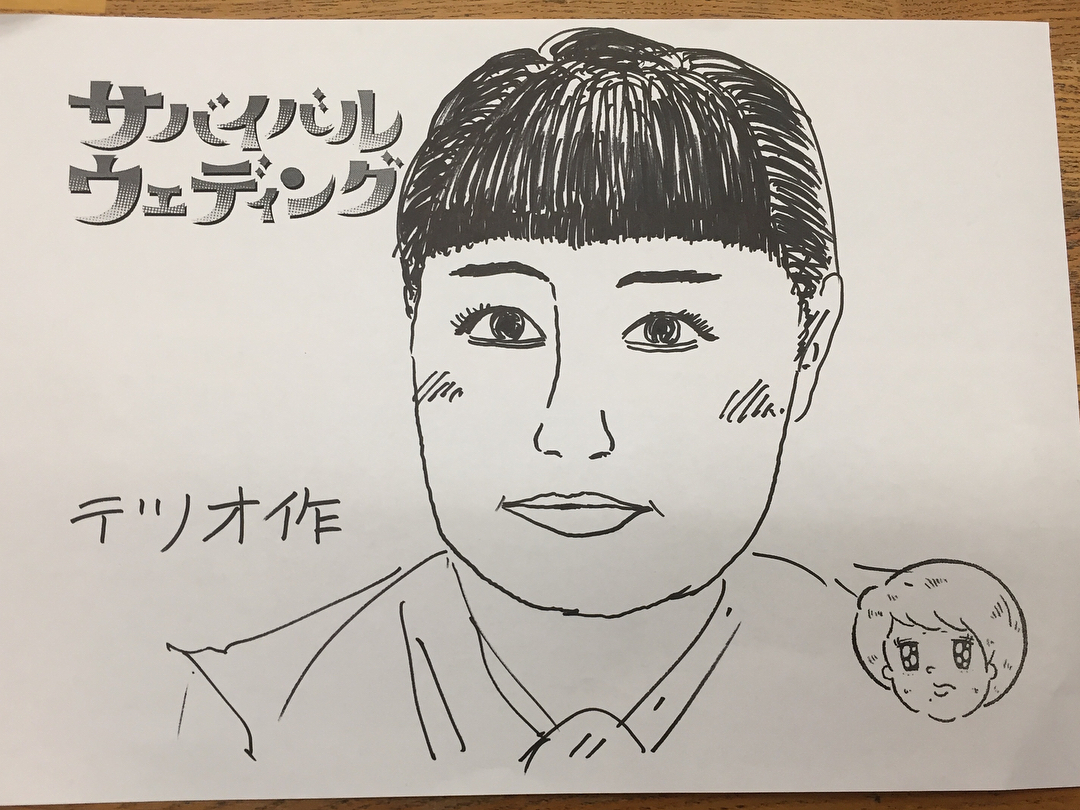 サバイバル
ウェディング
テツオ作